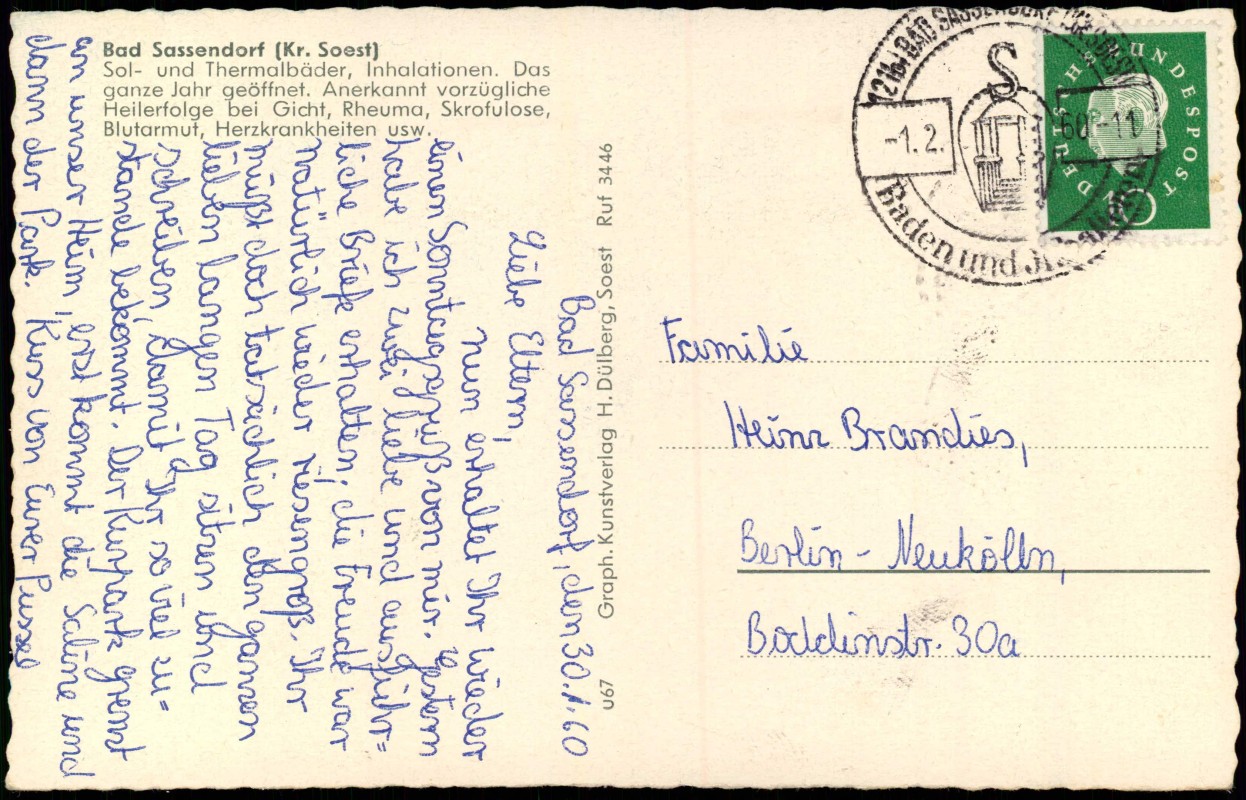 Bad Sassendorf (Kr. Soest)
Sol- und Thermalbäder, Inhalationen. Das
ganze Jahr geöffnet. Anerkannt vorzügliche
Heilerfolge bei Gicht, Rheuma, Skrofulose,
Blutarmut, Herzkrankheiten usw.
Bad Sassendorf, den 30.1.60
Liebe Eltern,
Nun erhaltet Ihr wieder
einen Sonntagsgruß von mir. Gestern
habe ich zwei liebe und ausführ=
liche Briefe erhalten, die Freude war
natürlich wieder riesengroß. Ihr
müßt doch tatsächlich den ganzen
lieben langen Tag sitzen und
schreiben, damit Ihr so viel zu=
stande bekommt. Der Kurpark grenzt
an unser Heim, erst kommt die Saline und
dann der Park. Kuss von Eurer Pussel
u67 Graph. Kunstverlag H. Dülberg, Soest Ruf 3446
BAD SASSENDORF
S
-1.2.
60 - 11
Baden und
DEUTSCHE BUNDESPOST
10
Familie
Heinz Brandies,
Berlin - Neukölln,
Boddinstr. 30a